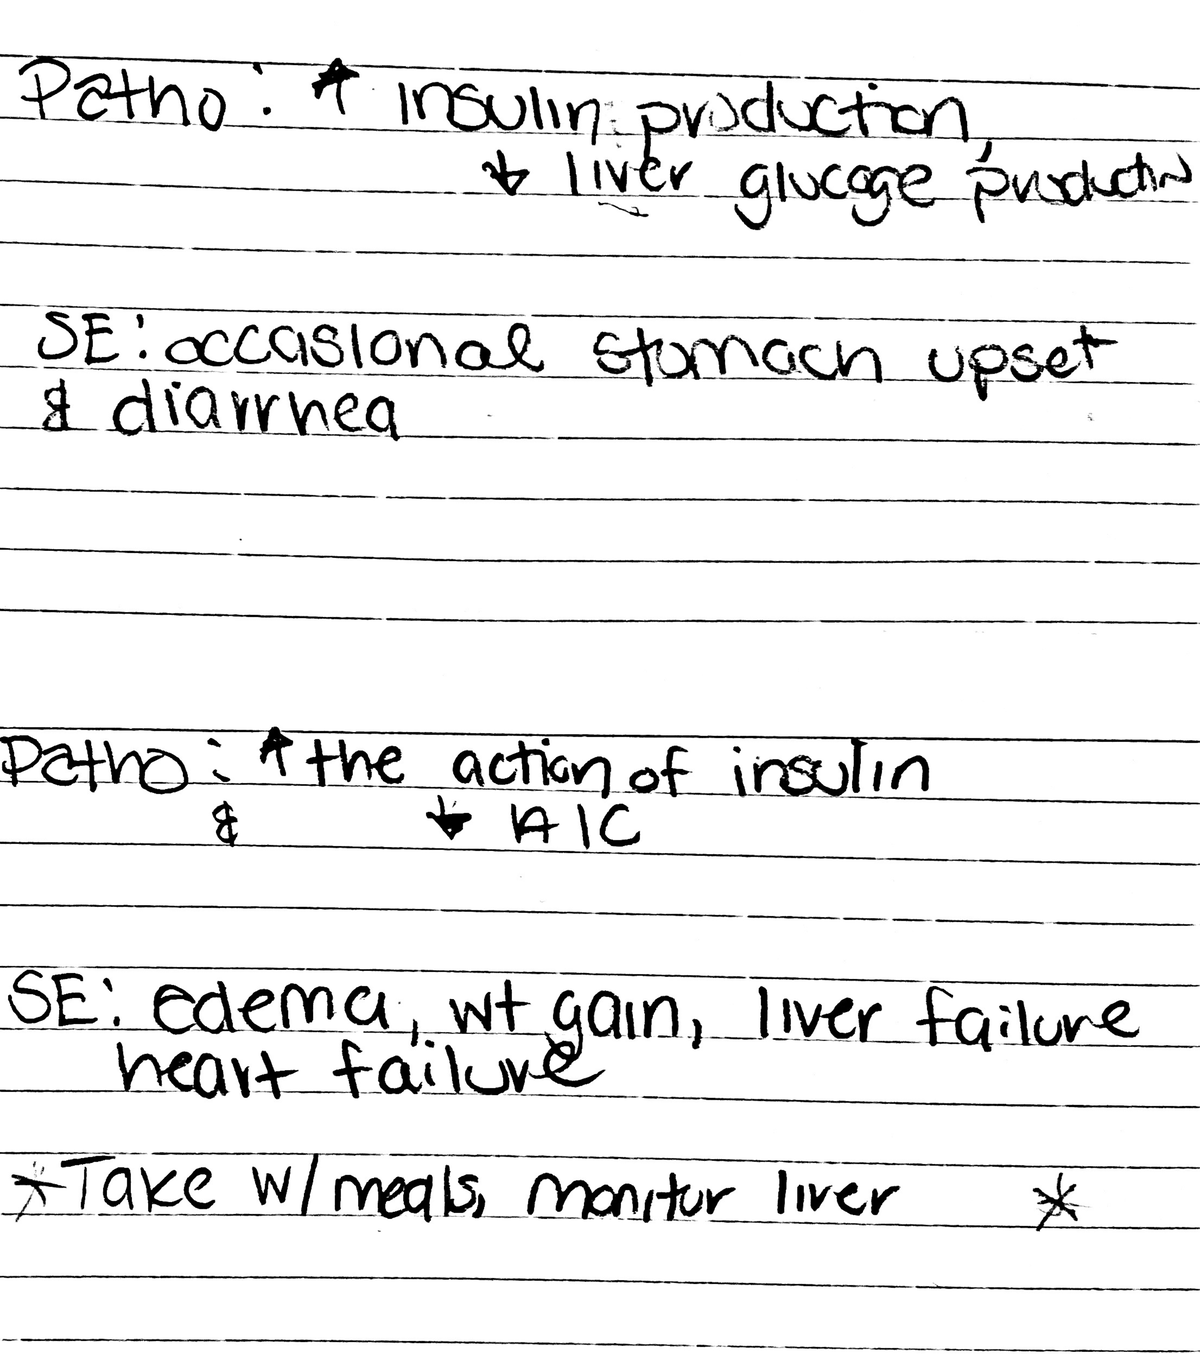 Patho: ↑ insulin production,
↓ liver glucoge production
SE: occasional stomach upset
& diarrhea
Patho: ↑ the action of insulin
& ↓ A1C
SE: edema, wt gain, liver failure
heart failure
*Take w/ meals, monitor liver *